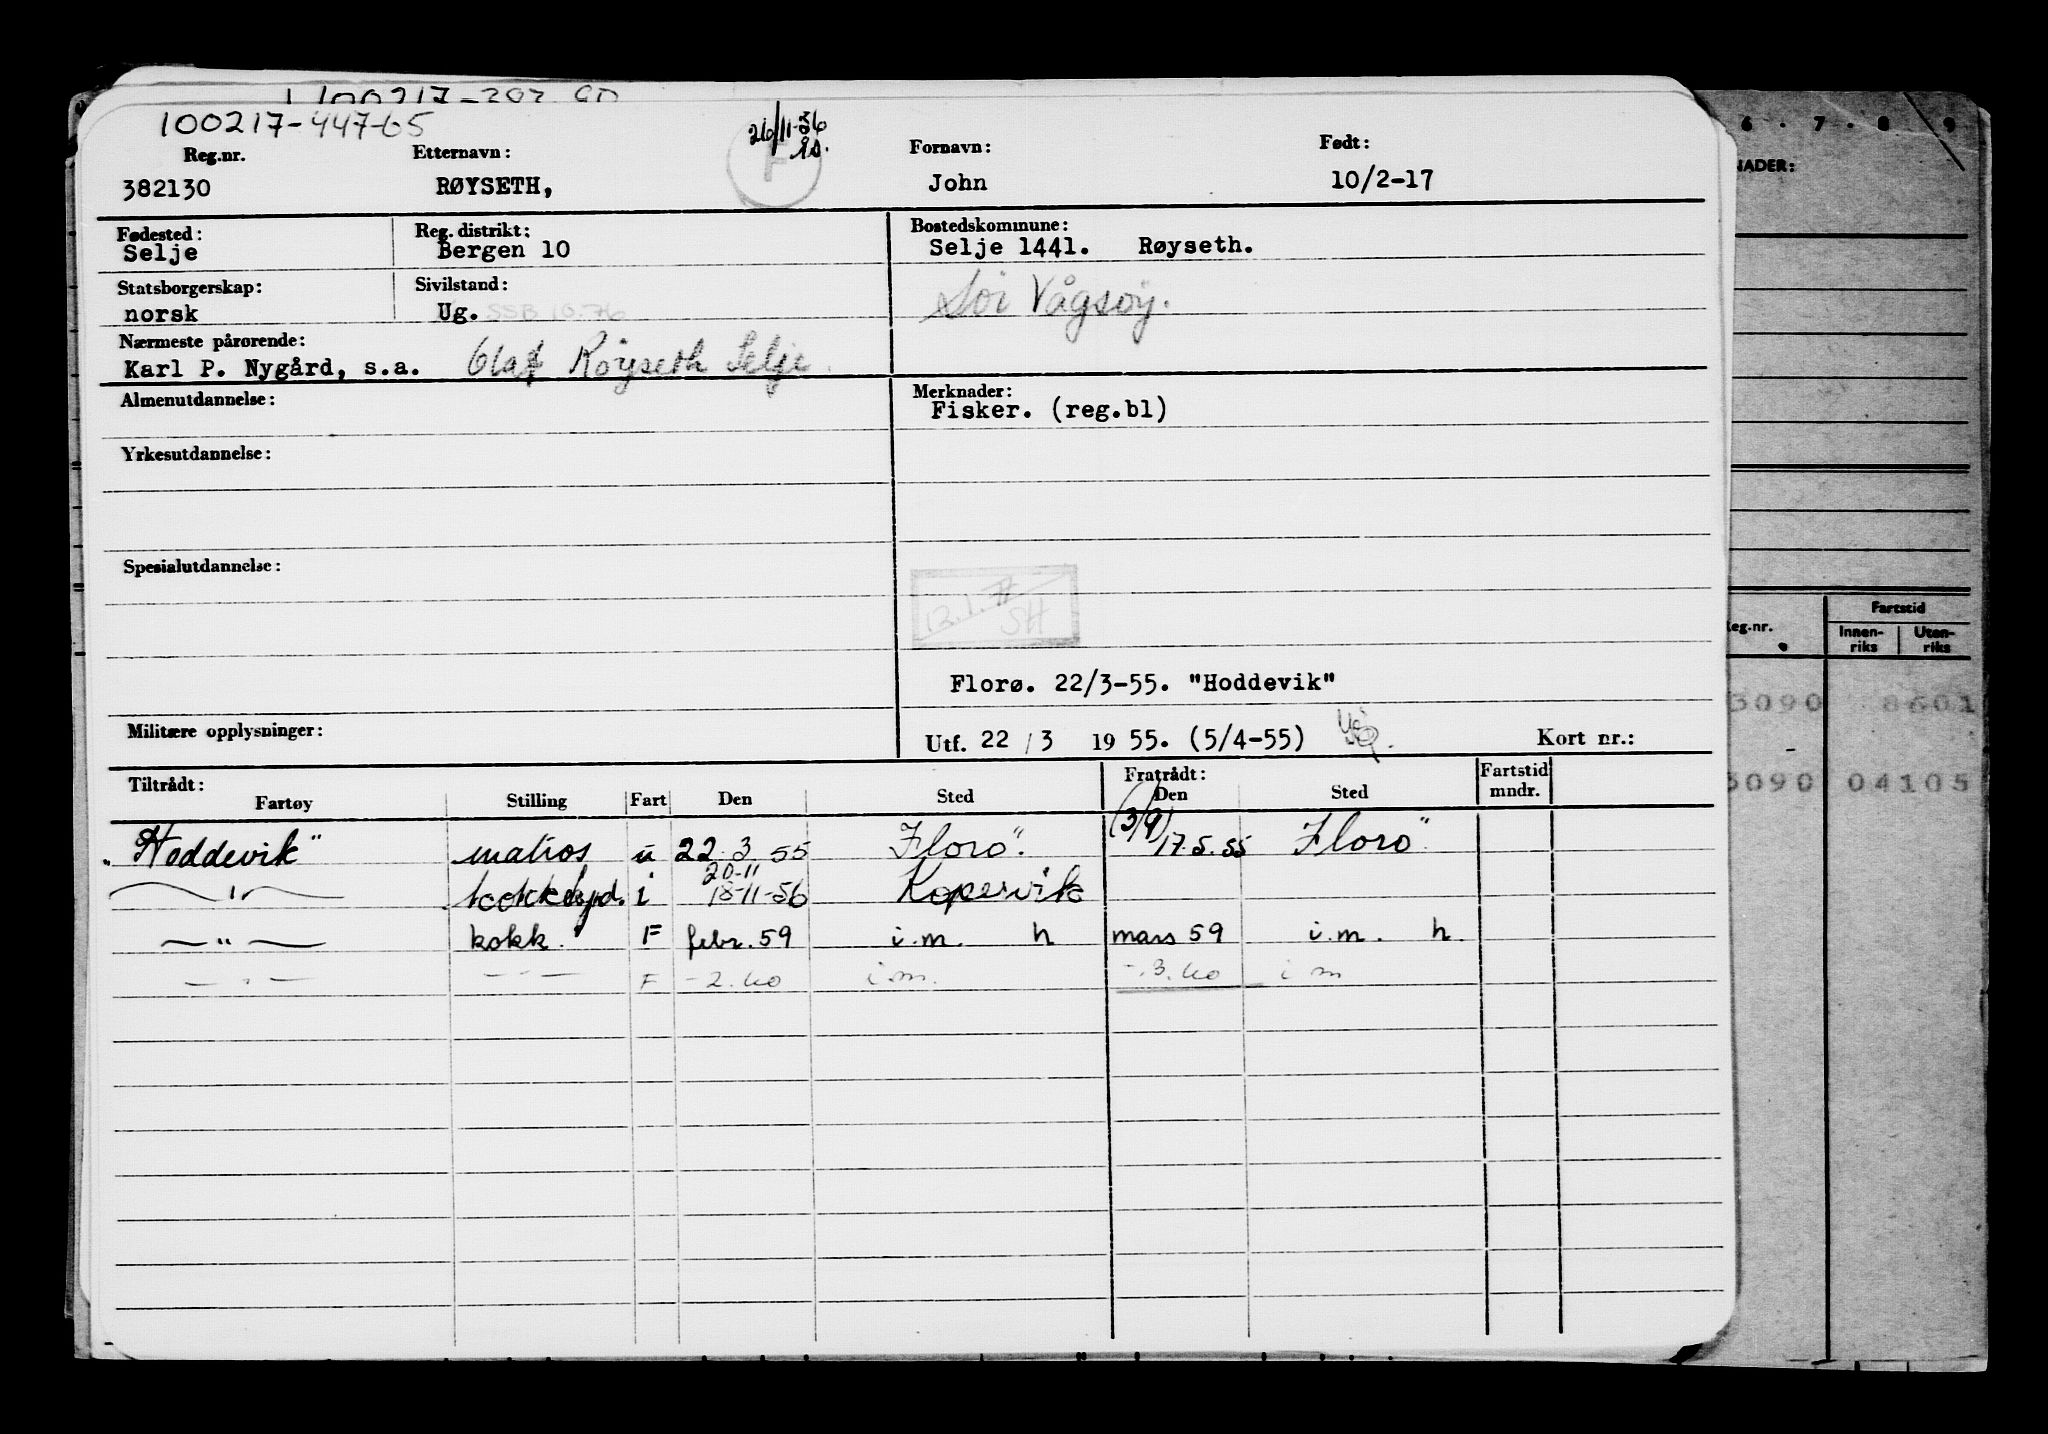 100217-447-65
26/11-56
Reg.nr. Etternavn: Fornavn: Født:
382130 RØYSETH, F John 10/2-17
Fødested: Reg. distrikt: Bostedskommune:
Selje Bergen 10 Selje 1441. Røyseth.
Statsborgerskap: Sivilstand: Sør Vågsøy.
norsk Ug. SSB 10.76
Nærmeste pårørende:
Karl P. Nygård, s.a. Olaf Røyseth Selje
Almenutdannelse: Merknader:
Fisker. (reg.bl)
Yrkesutdannelse:
Spesialutdannelse:
12.1.77
SH
Florø. 22/3-55. "Hoddevik"
Militære opplysninger: Utf. 22 / 3 19 55. (5/4-55) Kort nr.:
Tiltrådt: Fratrådt: Fartstid
Fartøy Stilling Fart Den Sted Den Sted mndr.
(3/9)
"Hoddevik" matros u 22.3.55 Florø. 17.5.55 Florø
20-11
—"— i 18-11-56 Kopervik
—"— kokk. F febr. 59 i.m. h mars 59 i.m. h.
—"— —"— F -2.60 i m. -.3.60 i m
6 . 7 . 8 . 9
NADER:
eg.nr. Fartstid
Innen- Uten-
riks riks
3090 8601
-
3090 04105